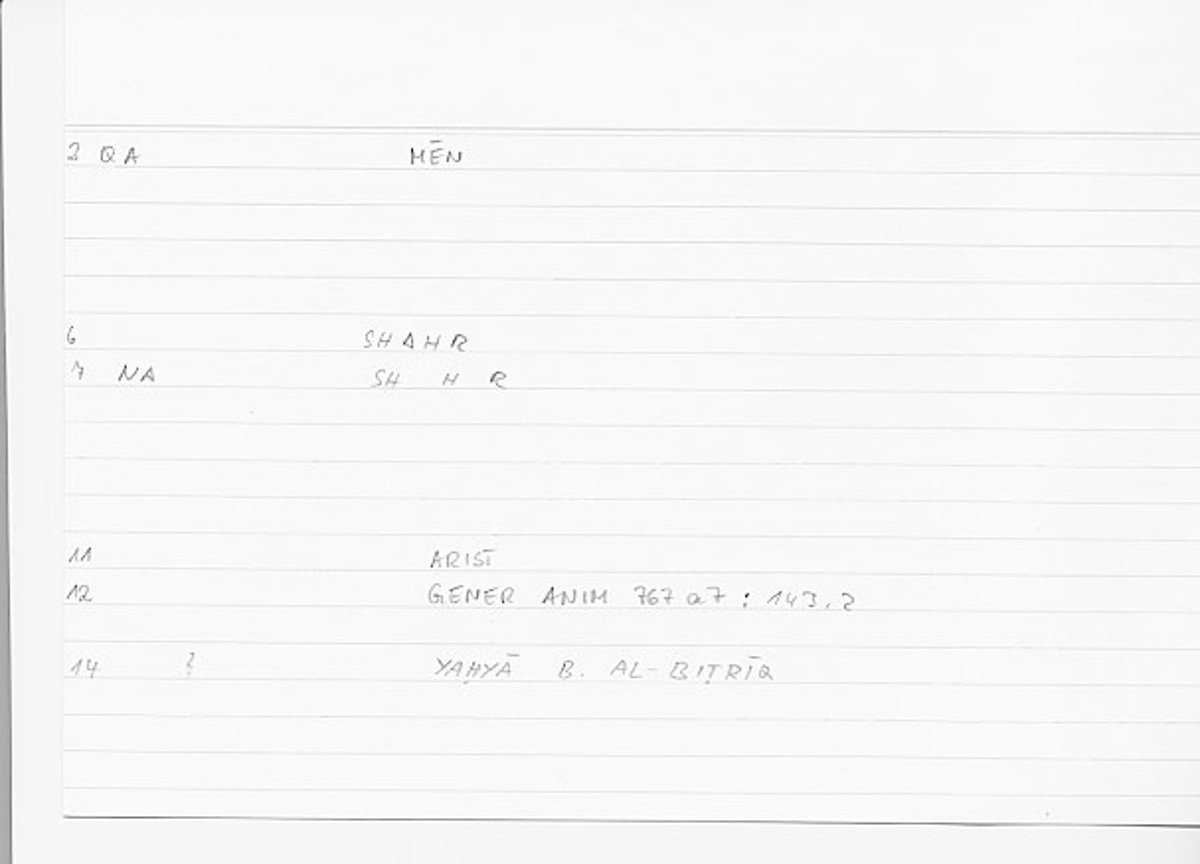 2 QA MĒN
6 SHAHR
7 NA SH H R
11 ARIST
12 GENER ANIM 767 a7 : 143.2
14 ? YAḤYĀ B. AL-BIṬRĪQ